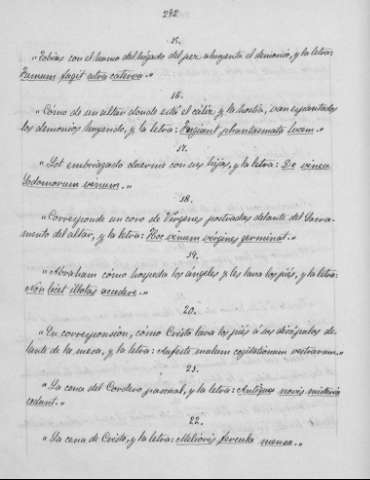 242
15.
"Tobias con el humo del hígado del pez ahuyenta el demonio, y la letra:
Famum fugit atra caterva."
16.
"Como de un altar donde está el cáliz y la hostia, van espantados
los demonios huyendo, y la letra: Fugiant phantasmata lucem."
17.
"Lot embriagado duerme con sus hijas, y la letra: De vinea
Sodomorum venum."
18.
"Corresponde un coro de Vírgenes postradas delante del Sacra-
mento del altar, y la letra: Hoc vinum vírgines germinat."
19.
"Abraham como hospeda los ángeles y les lava los piés, y la letra:
Non licet illotos accedere."
20.
"En corresponsion, cómo Cristo lava los piés á sus discípulos de-
lante de la mesa, y la letra: Auferte malam cogitationum vestrarum."
21.
"La cena del Cordero pascual, y la letra: Antiqua novis misteria
cedant."
22.
"La cena de Cristo, y la letra: Melioris mensa."